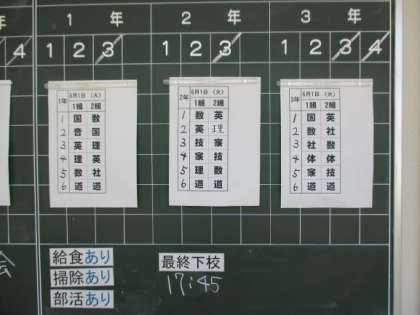 1年 2年 3年
1 2 3 1 2 3 1 2 3 4
1年 6月1日 (火)
1組 2組
1 国 数
2 音 国
3 英 理
4 理 英
5 数 社
6 道 道
2年 6月1日 (火)
1組 2組
1 数 英
2 英 理
3 技 家
4 家 技
5 理 数
6 道 道
3年 6月1日 (火)
1組 2組
1 国 英
2 数 社
3 社 数
4 体 体
5 家 技
6 道 道
会
給食あり
掃除あり
部活あり
最終下校
17:45